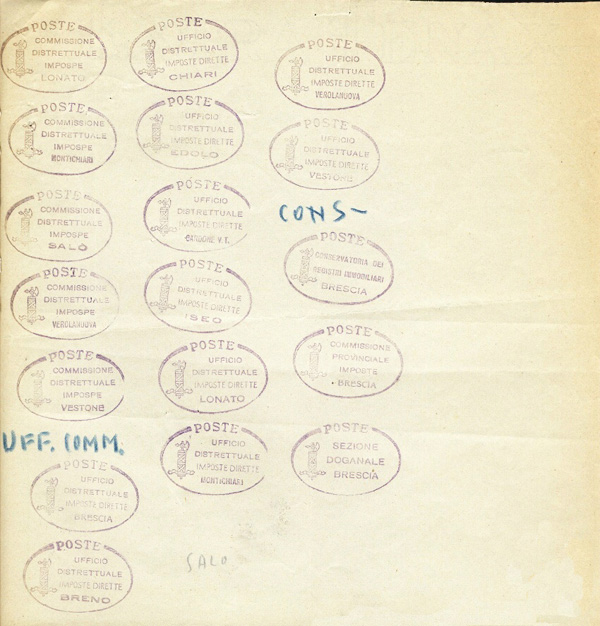 POSTE
COMMISSIONE
DISTRETTUALE
IMPOSPE
LONATO
POSTE
COMMISSIONE
DISTRETTUALE
IMPOSPE
MONTICHIARI
POSTE
COMMISSIONE
DISTRETTUALE
IMPOSPE
SALÒ
POSTE
COMMISSIONE
DISTRETTUALE
IMPOSPE
VEROLANUOVA
POSTE
COMMISSIONE
DISTRETTUALE
IMPOSPE
VESTONE
UFF. COMM.
POSTE
UFFICIO
DISTRETTUALE
IMPOSTE DIRETTE
BRESCIA
POSTE
UFFICIO
DISTRETTUALE
IMPOSTE DIRETTE
BRENO
POSTE
UFFICIO
DISTRETTUALE
IMPOSTE DIRETTE
CHIARI
POSTE
UFFICIO
DISTRETTUALE
IMPOSTE DIRETTE
EDOLO
POSTE
UFFICIO
DISTRETTUALE
IMPOSTE DIRETTE
V. T.
POSTE
UFFICIO
DISTRETTUALE
IMPOSTE DIRETTE
ISEO
POSTE
UFFICIO
DISTRETTUALE
IMPOSTE DIRETTE
LONATO
POSTE
UFFICIO
DISTRETTUALE
IMPOSTE DIRETTE
MONTICHIARI
SALO
POSTE
UFFICIO
DISTRETTUALE
IMPOSTE DIRETTE
VEROLANUOVA
POSTE
UFFICIO
DISTRETTUALE
IMPOSTE DIRETTE
VESTONE
CONS-
POSTE
CONSERVATORIA DEI
REGISTRI IMMOBILIARI
BRESCIA
POSTE
COMMISSIONE
PROVINCIALE
IMPOSTE
BRESCIA
POSTE
SEZIONE
DOGANALE
BRESCIA